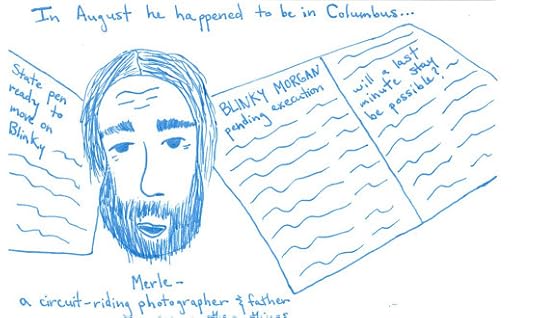 In August he happened to be in Columbus...
State pen
ready to
move on
Blinky
BLINKY MORGAN
pending execution
will a last
minute stay
be possible?!~
Merle-
a circuit-riding photographer & father
other things